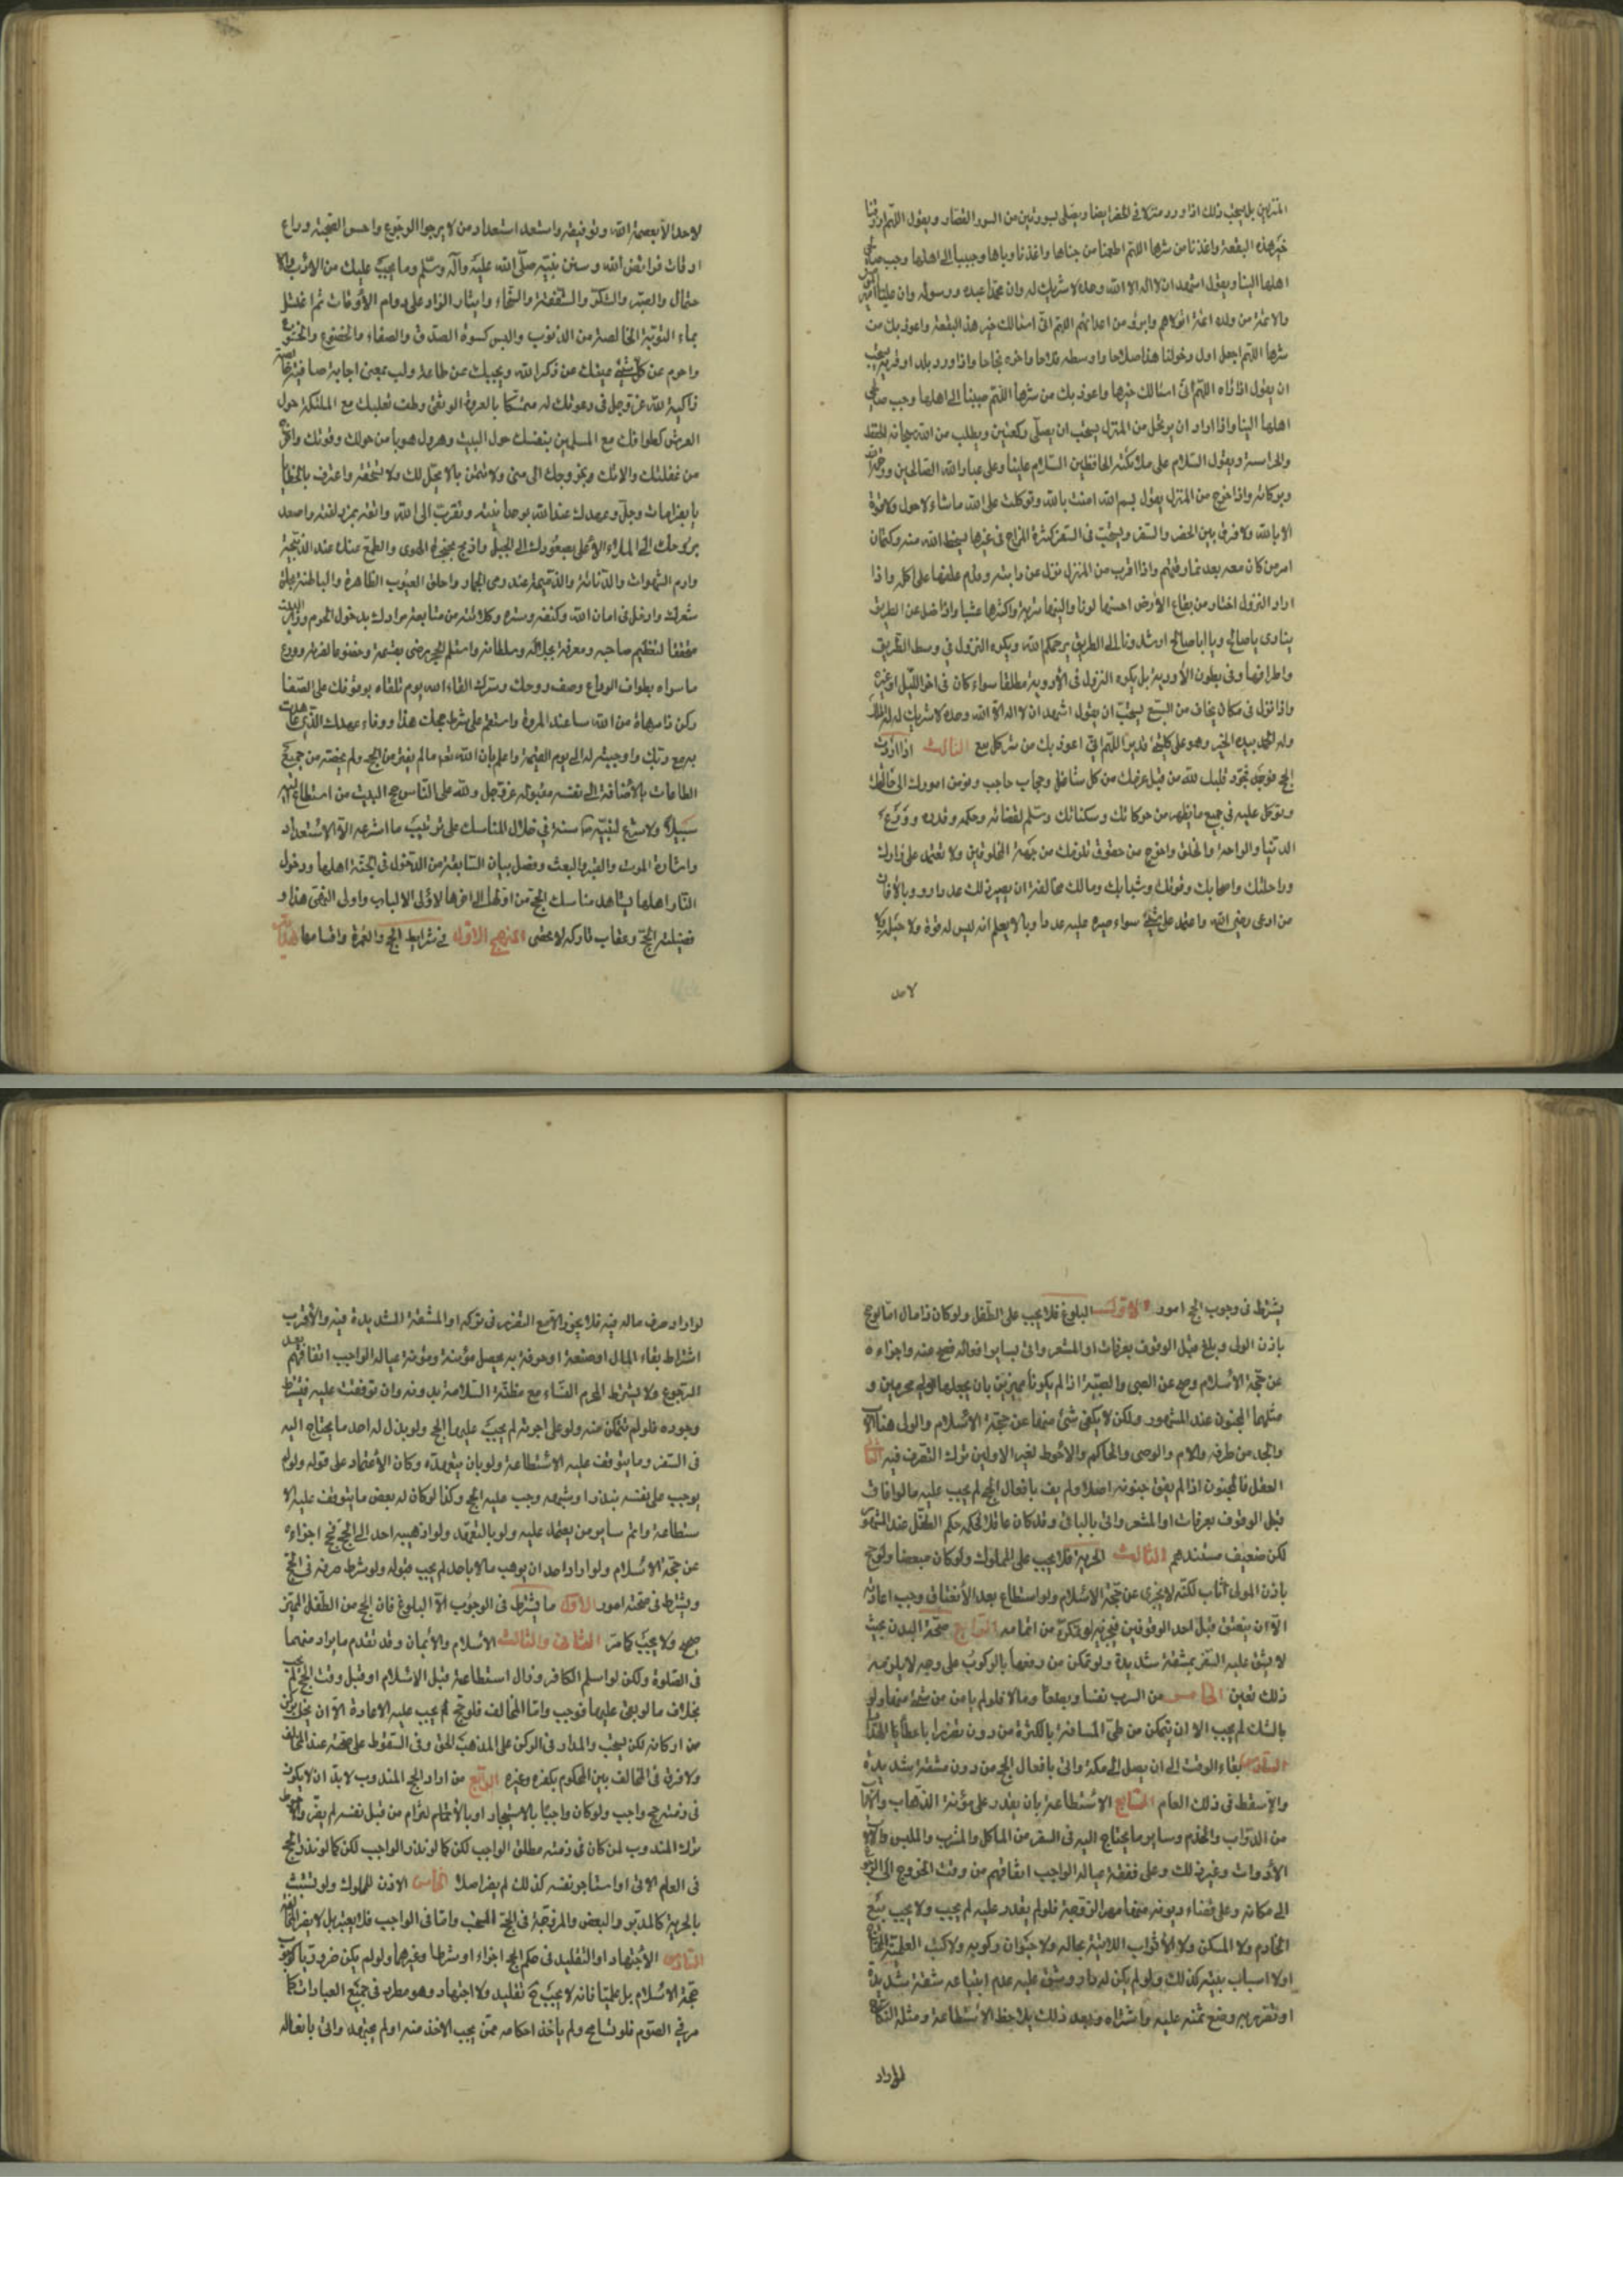 المنزلين بل يستحب ذلك اذا ورد منزلا في الحضر ايضا ويصلى ليسورتين من السور القصار ويقول اللهم ارزقنا
خير هذه البقعة واعذنا من شرها اللهم اطعمنا من جناها واعذنا من وباها وحببنا الى اهلها وحبب صالحى
اهلها الينا ويقول اشهد ان لا اله الا الله وحده لا شريك له وان محمدا عبده ورسوله وان عليا امير
والائمة من ولده ائمة اتولاهم وابرؤ من اعدائهم اللهم انى اسئالك خير هذه البقعة واعوذ بك من
شرها اللهم اجعل اول دخولنا هذا صلاحا واوسطه فلاحا واخره نجاحا واذا ورد بلدا او قرية يستحب
ان يقول اذا راه اللهم انى اسئالك خيرها واعوذ بك من شرها اللهم حببنا الى اهلها وحبب صالحى
اهلها الينا واذا اراد ان يرتحل من المنزل يستحب ان يصلى ركعتين ويطلب من الله سبحانه الحفظ
والحراسة ويقول السلام على ملائكته الحافظين السلام علينا وعلى عباد الله الصالحين ورحمة الله
وبركاته واذا خرج من المنزل يقول بسم الله امنت بالله وتوكلت على الله ما شاء لا حول ولا قوة
الا بالله ولا فرق بين الحضر والسفر ويستحب فى السفر كثرة المزاح فى غيرها يسخط الله منه وكتمان
امر من كان معه بعد مفارقتهم واذا اقرب من المنزل نزل عن دابته وقدم علفها على اكله واذا
اراد النزول اختار من بقاع الأرض احسنها لونا والينها تربة واكثرها عشبا واذا ضل عن الطريق
ينادى يا صالح ويا ابا صالح ارشدونا الى الطريق يرحمكم الله ويكره النزول في وسط الطريق
واطرافها وفى بطون الأودية بل يكره النزول فى الأودية مطلقا سواء كان فى اخر الليل او غيره
واذا نزل فى مكان يخاف من السبع يستحب ان يقول اشهد ان لا اله الا الله وحده لا شريك له له الملك
وله الحمد بيده الخير وهو على كل شئ قدير اللهم انى اعوذ بك من شر كل سبع الثالث اذا اردت
الحج فوجه تجرد قلبك لله من قبل عزمك من كل شاغل وحجاب حاجب وفوض امورك الى خالقك
وتوكل عليه فى جميع ما يظهر من حركاتك وسكناتك وسلم لقضائه وحكمه وقدره وودع
الدنيا والراحة والخلق واخرج من حقوق تلزمك من جهة المخلوقين ولا تعتمد على زادك
وراحلتك واصحابك وقوتك وشبابك ومالك مخالفة ان يصير ذلك عدوا ووبالا فان
من ادعى رضى الله واعتمد على شئ سواه صيره عليه عدوا ووبالا ليعلم انه ليس له قوة ولا حيلة ولا
لاحد
لاحد الا بعصمة الله وتوفيقه واستعد استعداد من لا يرجوا الرجوع واحسن الصحبة وراع
اوقات فرائض الله وسنن نبيه صلى الله عليه وآله وسلم وما يجب عليك من الادب والا
حتمال والصبر والشكر والشفقة والسخاء وايثار الزاد على دوام الأوقات ثم اغتسل
بماء التوبة الخالصة من الذنوب والبس كسوة الصدق والصفاء والخضوع والخشوع
واحرم عن كل شئ يمنعك عن ذكر الله ويحجبك عن طاعته ولب بمعنى اجابة صافية خالصة
زاكية لله عز وجل فى دعوتك له متمسكا بالعروة الوثقى وطف بقلبك مع الملئكة حول
العرش كطوافك مع المسلمين بنفسك حول البيت وهرول هربا من حولك وقوتك واخرج
من غفلتك وزلاتك وبخروجك الى منى ولا تتمن ما لا يحل لك ولا تستحقه واعترف بالخطايا
بالعرفات وجدد عهدك عند الله بوحدانيته وتقرب الى الله واتقه بمزدلفة واصعد
بروحك الى الملاء الاعلى بصعودك الى الجبل واذبح حنجرة الهوى والطمع عنك عند الذبيحة
وارم الشهوات والدنائة والذميمة عند رمى الجمار واحلق العيوب الظاهرة والباطنة بحلق
شعرك وادخل فى امان الله وكنفه وستره وكلائته من متابعة مرادك بدخول الحرم وزر البيت
متحققا لتعظيم صاحبه ومعرفة بجلاله وسلطانه واستلم الحجر رضى بقسمته وخضوعا لعزته وودع
ما سواه بطواف الوداع وصف روحك وسرك للقاء الله يوم تلقاه بوقوفك على الصفا
وكن ذا مرءاة من الله ساعتك عند المروة واستقم على شرط حجك هذا ووفاء عهدك الذى عاهدت
به مع ربك واوجبته له الى يوم القيمة واعلم بان الله تعالى لم يفرض الحج ولم يخصه من جميع
الطاعات بالأضافة الى نفسه بقوله عز وجل ولله على الناس حج البيت من استطاع اليه
سبيلا ولا شرع لنبيه ص سنة في خلال المناسك على ترتيب ما شرعه الا للاستعداد
واشارة الموت والقبر والبعث وفصل بيان السابقة من الدخول فى الجنة اهلها ودخول
النار اهلها بمشاهدة مناسك الحج من اولها الى اخرها لاولى الالباب واولى النهى هذا و
فضيلة الحج وعقاب تاركه لا تحصى المنهج الاول في شرايط الحج والعمرة واقسامها هداية
يشترط فى وجوب الحج امور الاول البلوغ فلا يجب على الطفل ولو كان ذا مال اما لو حج
باذن الولى وبلغ قبل الوقوف بعرفات او المشعر واتى بساير افعاله فصح منه واجزاءه
عن حجة الأسلام وصح عن الصبى والصبية اذا لم يكونا مميزين بان يجعلهما محرمين و
مثلهما المجنون عند المشهور ولكن لا يكفى شئ منها عن حجة الاسلام والولى هنا الاب
والجد من طرفه والام والوصى والحاكم والاحوط لغير الاولين ترك التصرف فيه الثانى
العقل فالمجنون اذا لم يفق جنونه اصلا ولم يف بافعال الحج لم يجب عليه ما لو افاق
قبل الوقوف بعرفات او المشعر واتى بالباقى وقد كان عاقلا فحكمه حكم الطفل عند المشهور
لكن ضعيف مستندهم الثالث الحرية فلا يجب على المملوك ولو كان مبعضا ولو حج
باذن المولى اثاب لكنه لا يجزى عن حجة الاسلام ولو استطاع بعد الأعتاق وجب اعادته
الا ان ينعتق قبل احد الوقوفين فيجزيه لو تمكن من اتمامه الرابع صحة البدن بحيث
لا يشق عليه السفر بمشقة شديدة ولو تمكن من دفعها بالركوب على وجه لا يلومه
ذلك تعين الخامس من السرب نفسا وبضعا ومالا فلو لم يامن من شئ منها ولو
بالشك لم يجب الا ان يتمكن من طى المسافة بالكثرة من دون ضرر باعطاء
السادس بقاء الوقت الى ان يصل الى مكة واتى بافعال الحج من دون مشقة شديدة
والا سقط فى ذلك العام السابع الاستطاعة بان يقدر على مؤنة الذهاب والاياب
من الدواب والخدم وساير ما يحتاج اليه فى السفر من الماكل والمشرب والملبس والات
الأدوات وغير ذلك وعلى نفقة عياله الواجب انفاقهم من وقت الخروج الى الرجوع
الى مكانه وعلى قضاء ديونه منها مهر الزوجة فلو لم يقدر عليه لم يجب ولا يجب بيع
الخادم ولا المسكن ولا الأثواب اللائقة بحاله ولا حيوان ركوبه ولا كتب العلمية
اولا اسباب بيته كذلك ولو لم يكن له دار وشق عليه عدم ابتياعه مشقة شديدة
او تضرر به وضع ثمنه عليه واشتراه وبعد ذلك يلاحظ الاستطاعة ومثله النكاح
لو اراد
لو اراد صرف ماله فيه فلا يجوز الا مع الضرر فى تركه او المشقة الشديدة فيه والأقرب
اشتراط بقاء المال او صنعة او حرفة به يحصل مؤنته ومؤنة عياله الواجب انفاقهم بعد
الرجوع ولا يشترط المحرم للنساء مع مظنة السلامة بدونه وان توقفت عليه فيشترط
وجوده فلو لم تتمكن منه ولو على اجرته لم يجب عليها الحج ولو بذل له احد ما يحتاج اليه
فى السفر وما يتوقف عليه الاستطاعة ولو بان يتعهده وكان الأعتماد على قوله ولو لم
يوجب على نفسه بنذر او شبهه وجب عليه الحج وكذا لو كان له بعض ما يتوقف عليه الا
ستطاعة واتم سايره من يعتمد عليه ولو بالتعهد ولو اذهب به احد الى الحج فحج اجزاءه
عن حجة الاسلام ولو اراد احد ان يوهب مالا باحد لم يجب قبوله ولو شرط صرفه فى الحج
ويشترط فى صحته امور الاول ما يشترط فى الوجوب الا البلوغ فان الحج من الطفل المميز
صحيح ولا يجب كما مر الثانى والثالث الاسلام والأيمان وقد تقدم ما يراد منهما
فى الصلوة ولكن لو اسلم الكافر وزال استطاعته قبل الاسلام او قبل وقت الحج لم يجب
بخلاف ما لو بقى عليها فوجب واما المخالف فلو حج لم يجب عليه الاعادة الا ان يخل بركن
من اركانه لكن يستحب والمدار فى الركن على المذهب الحق وفى السقوط على صحته عند المخالف
ولا فرق فى المخالف بين المحكوم بكفره وغيره الرابع من اراد الحج المندوب لا بد ان لا يكون
فى ذمته حج واجب ولو كان واجبا بالاستيجار او بالأتمام لحرام من قبل نفسه لم يضر والأحوط
ترك المندوب لمن كان فى ذمته مطلق الواجب لكن كما لو نذر الواجب لكن كما لو نذر الحج
فى العام الاتى او استاجر نفسه كذلك لم يضر اصلا الخامس الاذن للمملوك ولو تشبث
بالحرية كالمدبر والبعض والمزوجة فى الحج المستحب واما فى الواجب فلا يعتبر بل لا يضر المخالفة
السادس الأجتهاد او التقليد فى حكم الحج اجزاء او شرطا وغيرهما ولو لم يكن ضروريا كوجوب
حجة الاسلام بل علميا فانه لا يجب ح تقليد ولا اجتهاد وهو مطرد فى جميع العبادات كما
مر في الصوم فلو تسامح ولم يأخذ احكامه ممن يجب الاخذ منه او لم يجتهد واتى بافعاله